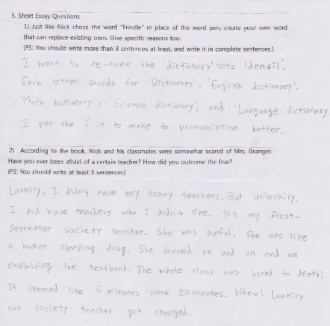 5. Short Essay Questions
1) Just like Nick chose the word "Frindle" in place of the word pen, create your own word
that can replace existing ones. Give specific reasons too.
(PS: You should write more than 3 sentences at least, and write it in complete sentences.)
I want to re-name the dictionary into 'demsil'.
Each letter stands for 'Dictionary', 'English dictionary',
'Math dictionary', Science dictionary', and 'Language dictionary.
I put the 'i' in to make to pronunciation better.
2) According to the book, Nick and his classmates were somewhat scared of Mrs. Granger.
Have you ever been afraid of a certain teacher? How did you outcome the fear?
(PS: You should write at least 5 sentences)
Luckily, I didn't have any scary teachers. But unluckily,
I did have teachers who I didn't like. It's my first-
semester society teacher. She was awful. She was like
a human sleeping drug. She droned on and on and on
explaining the textbook. The whole class was bored to death!
It seemed like 5 minutes were 20 minutes. Whew! Luckily
our society teacher got changed.